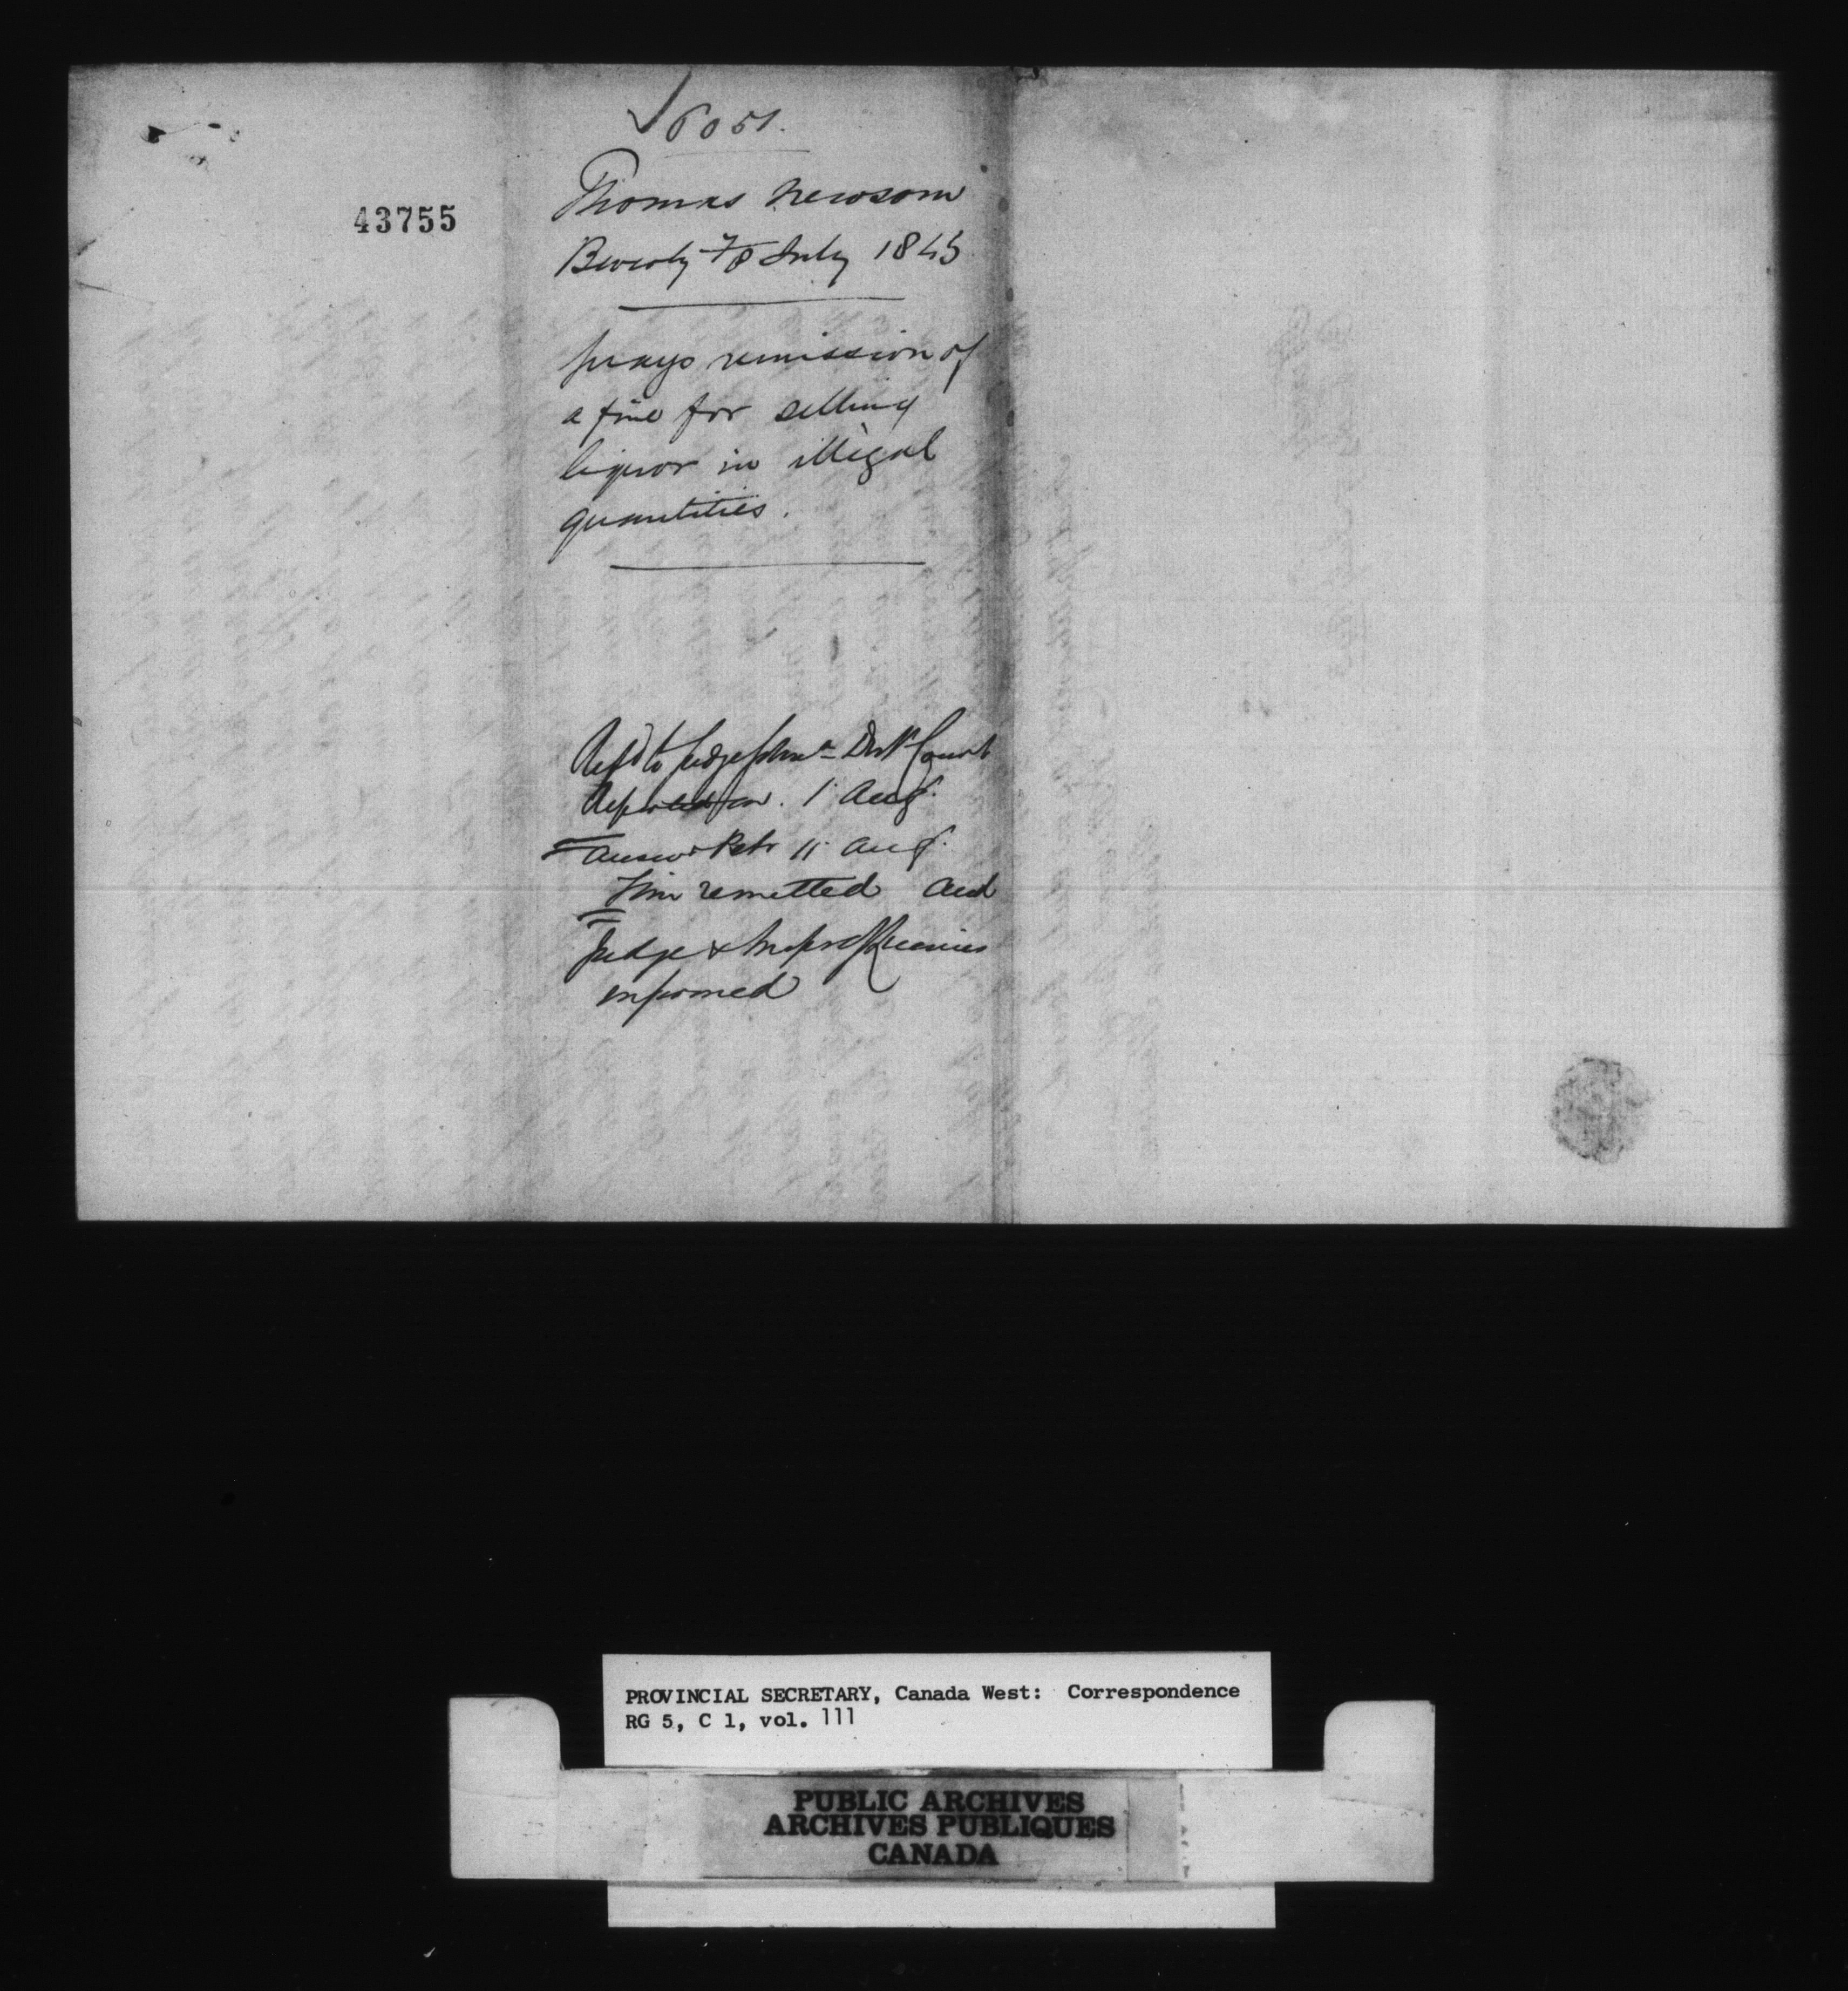 6051.
43755
Thomas Newsom
Beverly 7/8 July 1843
prays remission of
a fine for selling
liquor in illegal
quantities.
Refd to Judge Dist Court
Reported on. 1 Aug.
Answd Petr 11 Aug.
Fine remitted and
Judge & Insp of Licenses
informed
PROVINCIAL SECRETARY, Canada West: Correspondence
RG 5, C 1, vol. 111
PUBLIC ARCHIVES
ARCHIVES PUBLIQUES
CANADA